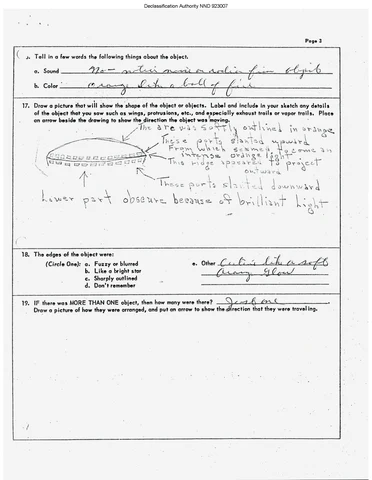 Declassification Authority NND 923007
Page 3
Tell in a few words the following things about the object.
a. Sound No-
b. Color orange like a ball of fire
17. Draw a picture that will show the shape of the object or objects. Label and include in your sketch any details
of the object that you saw such as wings, protrusions, etc., and especially exhaust trails or vapor trails. Place
an arrow beside the drawing to show the direction the object was moving.
The arc was softly outlined in orange
These ports slanted upward
From which seemed to come an
intense orange light
The ridge appeared to project
outward
These ports slanted downward
Lower part obscure because of brilliant light
18. The edges of the object were:
(Circle One): a. Fuzzy or blurred
b. Like a bright star
c. Sharply outlined
d. Don't remember
e. Other like a soft
glow
19. IF there was MORE THAN ONE object, then how many were there? Just one
Draw a picture of how they were arranged, and put an arrow to show the direction that they were traveling.